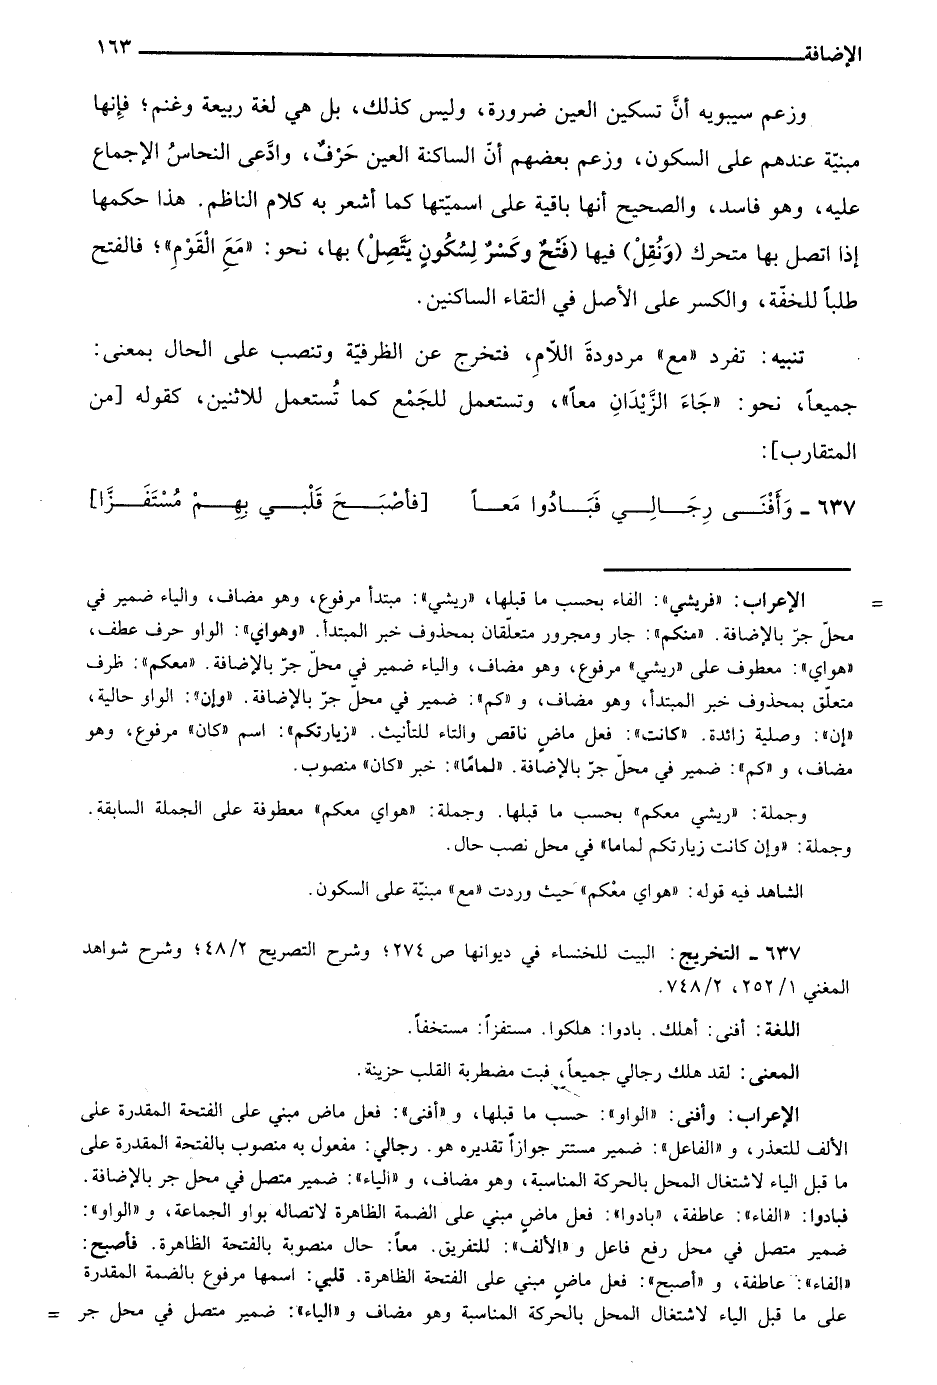 الإضافة ١٦٣
وزعم سيبويه أنَّ تسكين العين ضرورة، وليس كذلك، بل هي لغة ربيعة وغنم؛ فإنها
مبنيّة عندهم على السكون، وزعم بعضهم أنّ الساكنة العين حَرْفٌ، وادَّعى النحاسُ الإجماع
عليه، وهو فاسد، والصحيح أنها باقية على اسميّتها كما أشعر به كلام الناظم. هذا حكمها
إذا اتصل بها متحرك (وَنُقِلْ) فيها (فَتْحٌ وكَسْرٌ لِسُكُونٍ يَتَّصِلْ) بها، نحو: «مَعَ الْقَوْمِ»؛ فالفتح
طلباً للخفّة، والكسر على الأصل في التقاء الساكنين.
تنبيه: تفرد «مع» مردودةَ اللاَّمِ، فتخرج عن الظرفيّة وتنصب على الحال بمعنى:
جميعاً، نحو: «جَاءَ الزَّيْدَانِ معاً»، وتستعمل للجَمْع كما تُستعمل للاثنين، كقوله [من
المتقارب]:
٦٣٧ ـ وَأَفْنَـى رِجَـالِـي فَبَـادُوا مَعـاً [فأصْبَـحَ قَلْبـي بِهِـمْ مُسْتَفَـزَّا]
= الإعراب: «فريشي»: الفاء بحسب ما قبلها، «ريشي»: مبتدأ مرفوع، وهو مضاف، والياء ضمير في
محلّ جرّ بالإضافة. «منكم»: جار ومجرور متعلّقان بمحذوف خبر المبتدأ. «وهواي»: الواو حرف عطف،
«هواي»: معطوف على «ريشي» مرفوع، وهو مضاف، والياء ضمير في محلّ جرّ بالإضافة. «معكم»: ظرف
متعلّق بمحذوف خبر المبتدأ، وهو مضاف، و «كم»: ضمير في محلّ جرّ بالإضافة. «وإن»: الواو حالية،
«إن»: وصلية زائدة. «كانت»: فعل ماضٍ ناقص والتاء للتأنيث. «زيارتكم»: اسم «كان» مرفوع، وهو
مضاف، و «كم»: ضمير في محلّ جرّ بالإضافة. «لمامًا»: خبر «كان» منصوب.
وجملة: «ريشي معكم» بحسب ما قبلها. وجملة: «هواي معكم» معطوفة على الجملة السابقة.
وجملة: «وإن كانت زيارتكم لماما» في محل نصب حال.
الشاهد فيه قوله: «هواي معْكم» حيث وردت «مع» مبنيّة على السكون.
٦٣٧ ـ التخريج: البيت للخنساء في ديوانها ص ٢٧٤؛ وشرح التصريح ٤٨/٢؛ وشرح شواهد
المغني ١/ ٢٥٢، ٧٤٨/٢.
اللغة: أفنى: أهلك. بادوا: هلكوا. مستفزاً: مستخفاً.
المعنى: لقد هلك رجالي جميعاً، فبت مضطربة القلب حزينة.
الإعراب: وأفنى: «الواو»: حسب ما قبلها، و «أفنى»: فعل ماض مبني على الفتحة المقدرة على
الألف للتعذر، و «الفاعل»: ضمير مستتر جوازاً تقديره هو. رجالي: مفعول به منصوب بالفتحة المقدرة على
ما قبل الياء لاشتغال المحل بالحركة المناسبة، وهو مضاف، و «الياء»: ضمير متصل في محل جر بالإضافة.
فبادوا: «الفاء»: عاطفة، «بادوا»: فعل ماضٍ مبني على الضمة الظاهرة لاتصاله بواو الجماعة، و «الواو»:
ضمير متصل في محل رفع فاعل و «الألف»: للتفريق. معاً: حال منصوبة بالفتحة الظاهرة. فأصبح:
«الفاء»: عاطفة، و «أصبح»: فعل ماضٍ مبني على الفتحة الظاهرة. قلبي: اسمها مرفوع بالضمة المقدرة
على ما قبل الياء لاشتغال المحل بالحركة المناسبة وهو مضاف و «الياء»: ضمير متصل في محل جر =